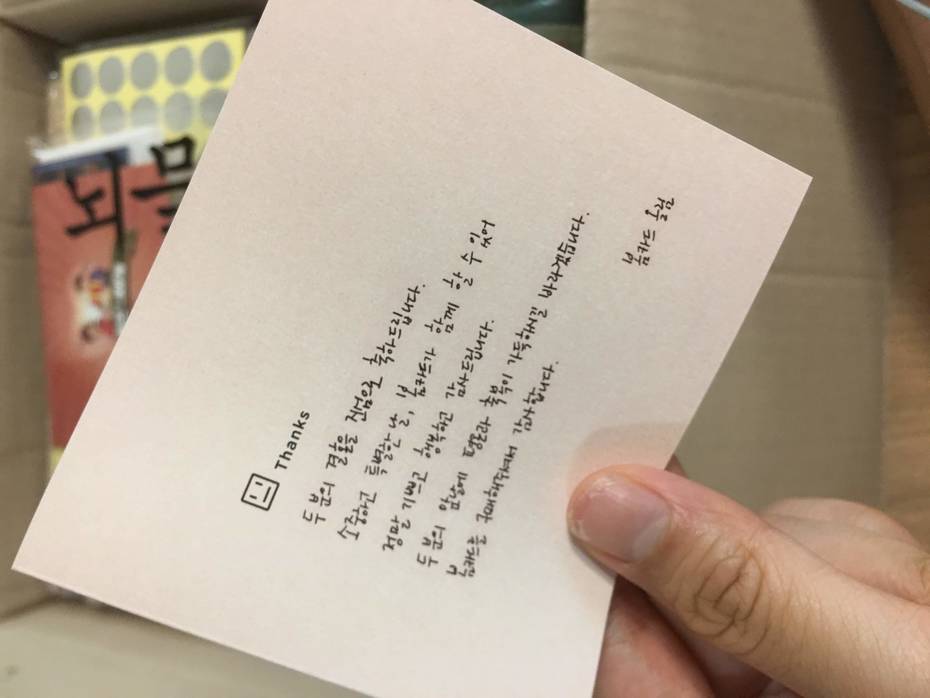 Thanks
두 분의 결혼을 진심으로 축하드립니다.
소중하고 특별한 날, 함께 할 수 있어
정말 기쁘고 행복하고 감사드립니다.
두 분의 앞날에 가득하시길 바라겠습니다.
구매해주셔서 감사합니다.
뇌물